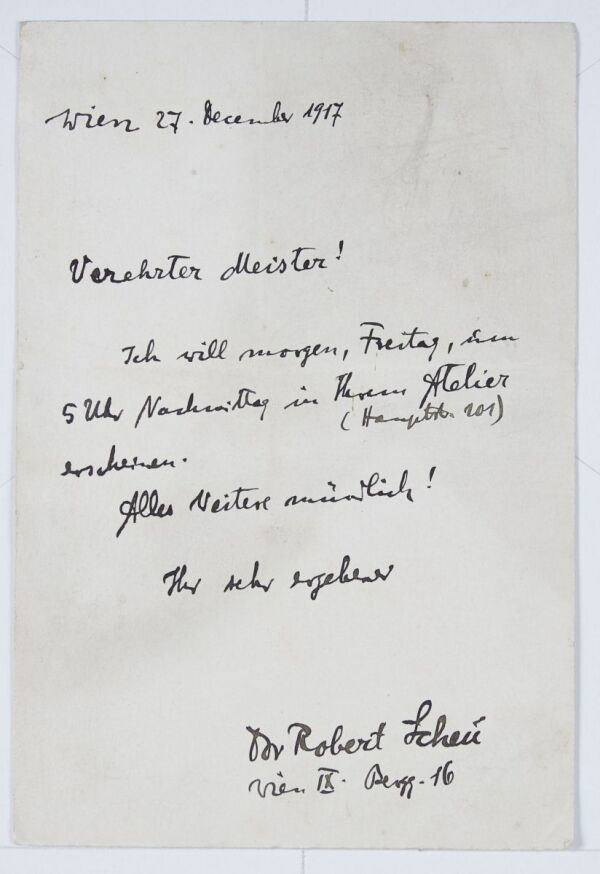 Wien 27. December 1917
Verehrter Meister!
Ich will morgen, Freitag, um
5 Uhr Nachmittag in Ihrem Atelier
(Hauptstr. 101)
erscheinen.
Alles Weitere mündlich!
Ihr sehr ergebener
Dr Robert Scheu
Wien IX. Bergg. 16